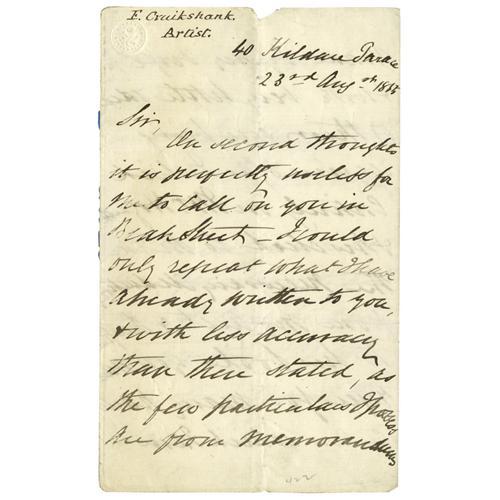 F. Cruikshank.
Artist.
40 Kildare Terrace
23rd Augst 1855
Sir,
On second thoughts
it is perfectly useless for
me to call on you in
Beak Street – I could
only repeat what I have
already written to you,
& with less accuracy
than there stated, as
the few particulars I possess
are from memorandums
422